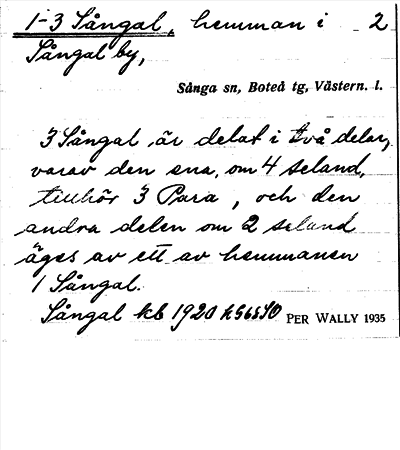 1-3 Sångal, hemman i 2
Sångal by,
Sånga sn, Boteå tg, Västern. l.
3 Sångal är delat i två delar,
varav den ena, om 4 seland,
tillhör 3 Para, och den
andra delen om 2 seland
äges av ett av hemmanen
1 Sångal.
Sångal kb 1920
PER WALLY 1935